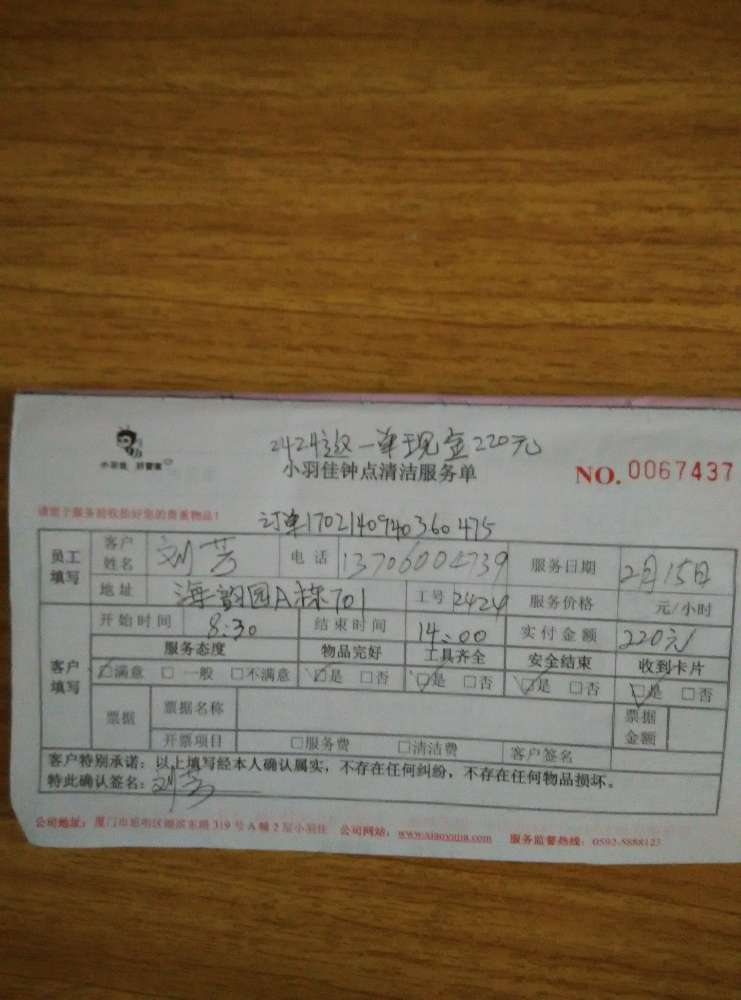 2424这一单现金220元
小羽佳 好管家
小羽佳钟点清洁服务单
NO. 0067437
请您于服务前收拾好您的贵重物品！
订单1702140940360475
员工填写 客户姓名 刘芳 电话 13706004739 服务日期 2月15日
地址 海韵园A栋701 工号 2424 服务价格 元/小时
客户填写 开始时间 8:30 结束时间 14:00 实付金额 220元
服务态度 物品完好 工具齐全 安全结束 收到卡片
☑满意 □一般 □不满意 ☑是 □否 ☑是 □否 ☑是 □否 ☑是 □否
票据 票据名称 票据金额
开票项目 □服务费 □清洁费 客户签名
客户特别承诺：以上填写经本人确认属实，不存在任何纠纷，不存在任何物品损坏。
特此确认签名：刘芳
公司地址：厦门市思明区湖滨东路319号A幢2层小羽佳 公司网站：www.xiaoyujia.com 服务监督热线：0592-5888123